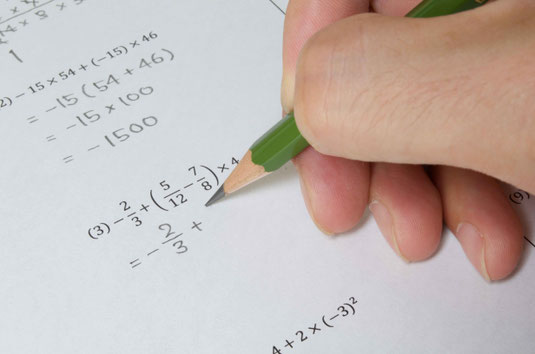 1
2) − 15 × 54 + (−15) × 46
= −15 ( 54 + 46 )
= −15 × 100
= −1500
(3) − 2/3 + (5/12 − 7/8) × 4
= − 2/3 +
4 + 2 × (−3)²
(9)